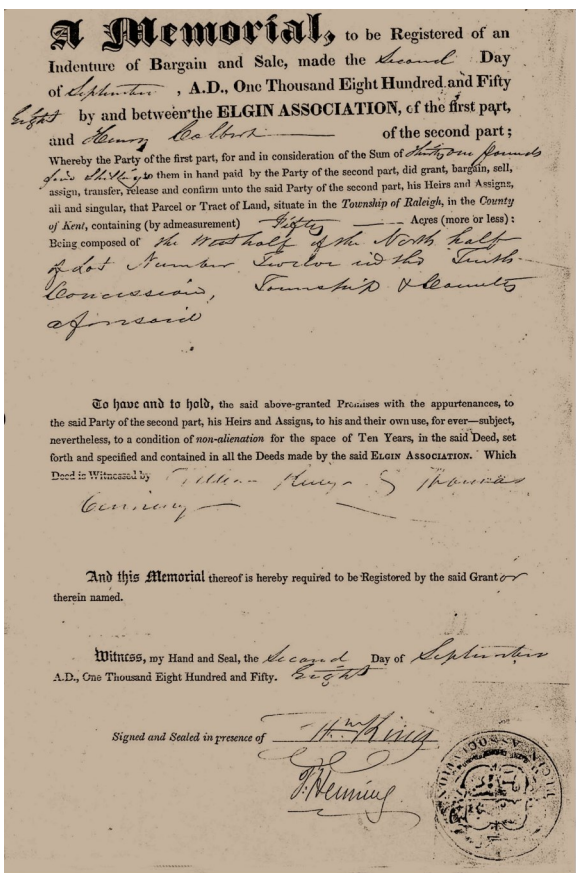 A Memorial, to be Registered of an
Indenture of Bargain and Sale, made the Second Day
of September, A.D., One Thousand Eight Hundred and Fifty
Eight by and between the ELGIN ASSOCIATION, of the first part,
and Henry Colbert of the second part;
Whereby the Party of the first part, for and in consideration of the Sum of Thirty one pounds
five Shillings to them in hand paid by the Party of the second part, did grant, bargain, sell,
assign, transfer, release and confirm unto the said Party of the second part, his Heirs and Assigns,
all and singular, that Parcel or Tract of Land, situate in the Township of Raleigh, in the County
of Kent, containing (by admeasurement) Fifty Acres (more or less):
Being composed of the West half of the North half
of Lot Number Twelve in the Tenth
Concession, Township & County
aforesaid
To have and to hold, the said above-granted Premises with the appurtenances, to
the said Party of the second part, his Heirs and Assigns, to his and their own use, for ever—subject,
nevertheless, to a condition of non-alienation for the space of Ten Years, in the said Deed, set
forth and specified and contained in all the Deeds made by the said ELGIN ASSOCIATION. Which
Deed is Witnessed by William King & Thomas
And this Memorial thereof is hereby required to be Registered by the said Grantor
therein named.
Witness, my Hand and Seal, the Second Day of September
A.D., One Thousand Eight Hundred and Fifty. Eight
Signed and Sealed in presence of Wm King
T. Henning
ELGIN ASSOCIATION